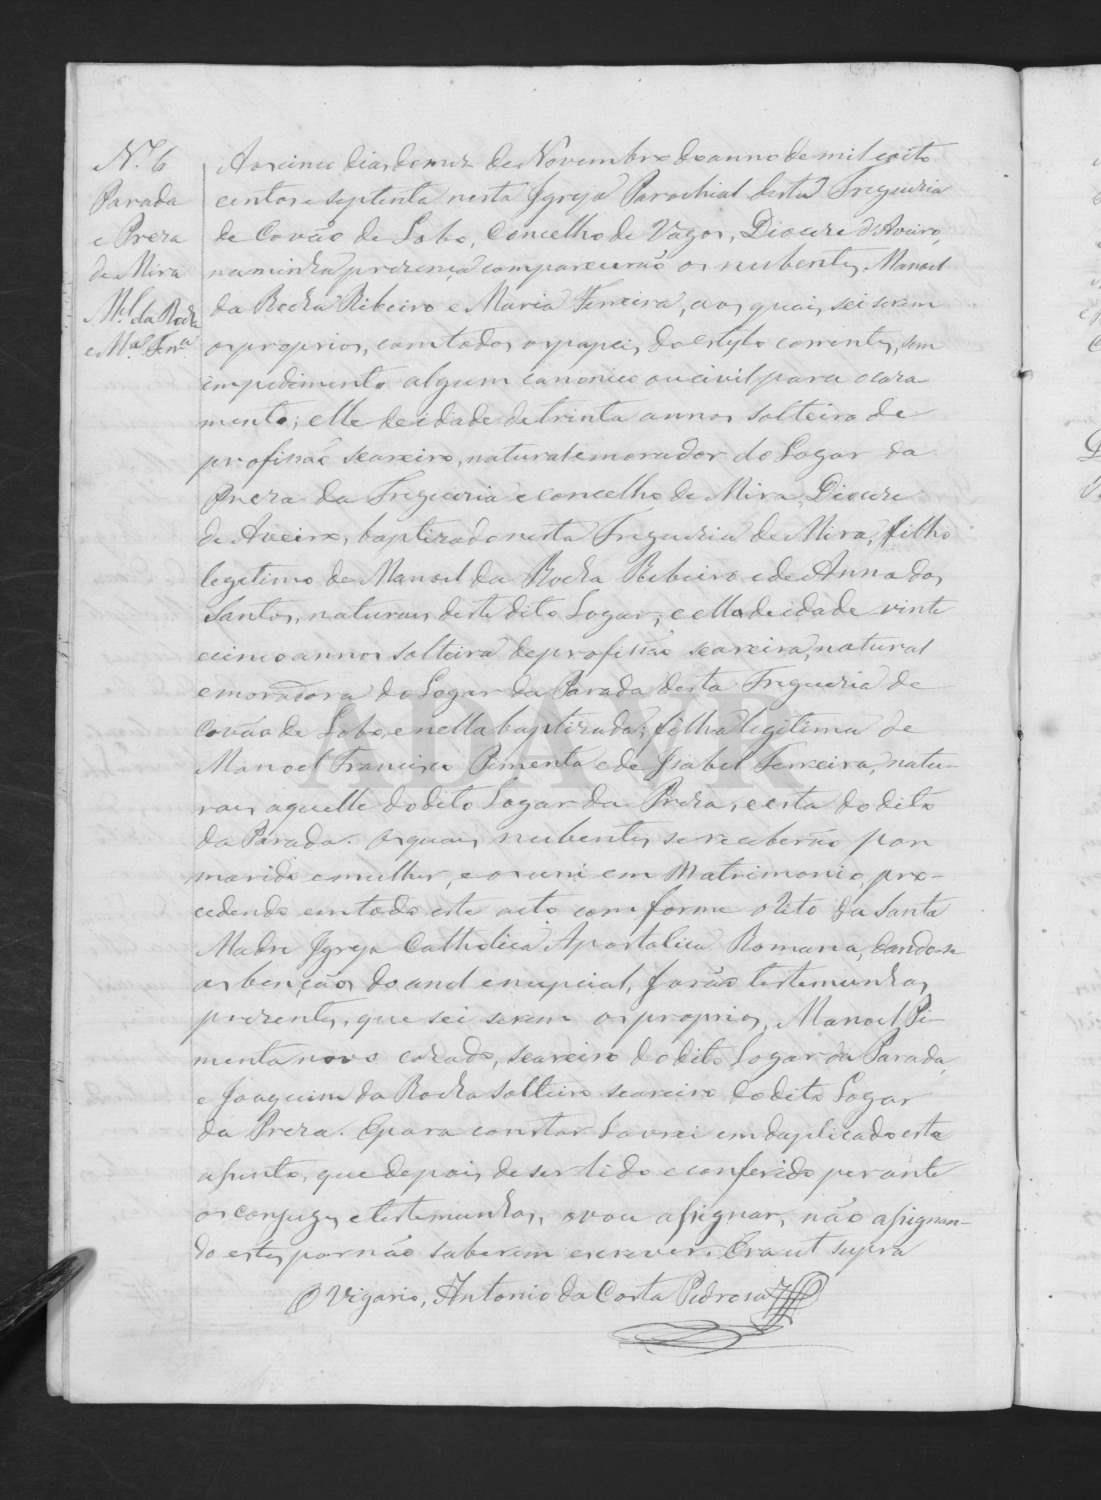 N.º 6
Parada
e Preza
de Mira
M.el da Rocha
e M.a Ferr.a
Aos cinco dias do mez de Novembro do anno de mil oito
centos e septenta nesta Igreja Parochial desta Freguezia
de Covão de Lobo, Concelho de Vagos, Diocese d'Aveiro,
na minha prezença comparecerão os nubentes, Manoel
da Rocha Ribeiro e Maria Ferreira, aos quais, sei serem
os proprios, com todos os papeis do estylo correntes, sem
impedimento algum canonico ou civil para o caza
mento; elle de idade de trinta annos solteiro de
profissão seareiro, natural e morador do Logar da
Preza da Freguezia e concelho de Mira, Diocese
de Aveiro, baptizado nesta Freguezia de Mira, filho
legitimo de Manoel da Rocha Ribeiro e de Anna dos
Santos, naturais deste dito Logar; e ella de idade vinte
e cinco annos solteira de profissão seareira, natural
e moradora do Logar da Parada desta Freguezia de
Covão de Lobo, e nella baptizada; filha legitima de
Manoel Francisco Pimenta e de Isabel Ferreira, natu-
rais aquelle do dito Logar da Preza, e esta do dito
da Parada. Os quais nubentes se receberão por
marido e mulher, e os uni em Matrimonio, pro-
cedendo em todo este acto conforme o Rito da Santa
Madre Igreja Catholica Apostolica Romana, dando-se
as bençãos do anel e nupcial, forão testemunhas
prezentes, que sei serem os proprios, Manoel Pi-
menta novo cazado, seareiro do dito Logar da Parada,
e Joaquim da Rocha solteiro seareiro do dito Logar
da Preza. E para constar lavrei em duplicado este
assento, que depois de ser lido e conferido perante
os conjuges e testemunhas, o vou assignar, não assignan-
do estes por não saberem escrever. Era ut supra
O Vigario, Antonio da Costa Pedrosa
ADAVR